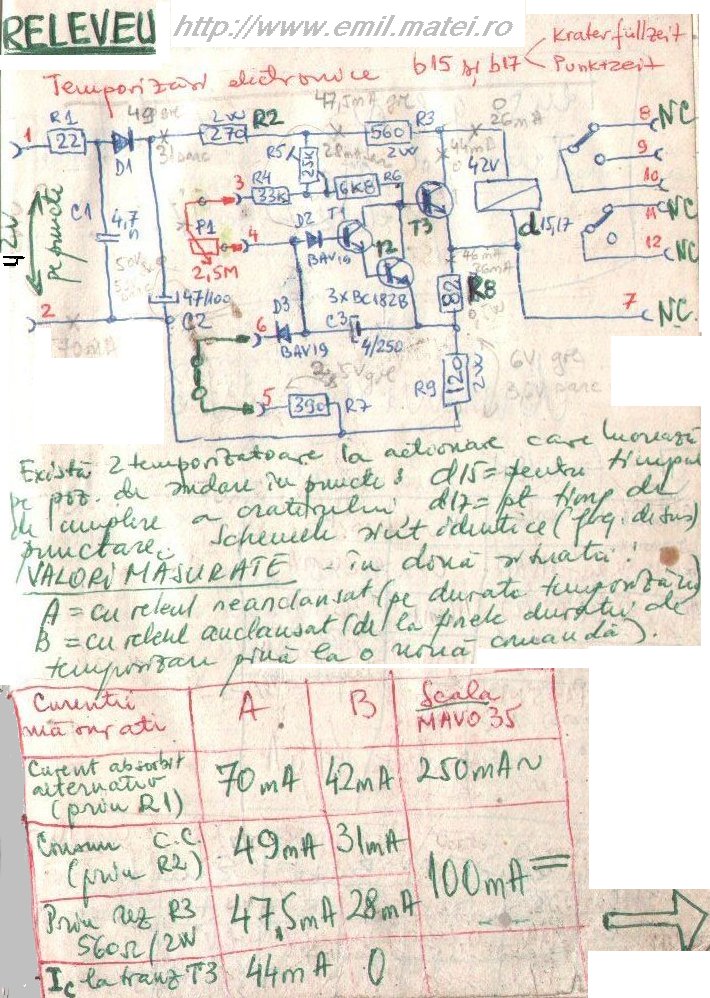 RELEVEU http://www.emil.matei.ro
Temporizări electronice b15 și b17
Kraterfüllzeit
Punktzeit
49 gre
31 panc
R1
22
D1
2W
270
R2
47,5mA gre
28mA
560
2W
R3
0
26mA
44mA
0
42V
d15,17
1
42V
pe puncte
C1
4,7
n
47/100
C2
2
70mA
R5
25K
R4
33K
3
6K8
R6
P1
2,5M
4
D2
BAV19
T1
T2
T3
3xBC182B
82
R8
46mA
26mA
D3
BAV19
6
C3
4/250
5
390
R7
5V gre
R9
120
2W
6V gre
3,6V panc
8 NC
9
10
11 NC
12 NC
7 NC
Există 2 temporizatoare la acționare care lucrează
pe poz. de sudare în puncte: d15=pentru timpul
de umplere a craterului d17= pt timp de
punctare. Schemele sînt identice (fig. de sus)
VALORI MĂSURATE - în două situații:
A = cu releul neanclanșat (pe durata temporizării)
B = cu releul anclanșat (de la finele duratei de
temporizare pînă la o nouă comandă).
Curentii măsurati A B Scala MAVO 35
Curent absorbit alternativ (prin R1) 70mA 42mA 250mA~
Consum C.C. (prin R2) 49mA 31mA 100mA=
Prin rez R3 560Ω/2W 47,5mA 28mA
Ic la tranz T3 44mA 0